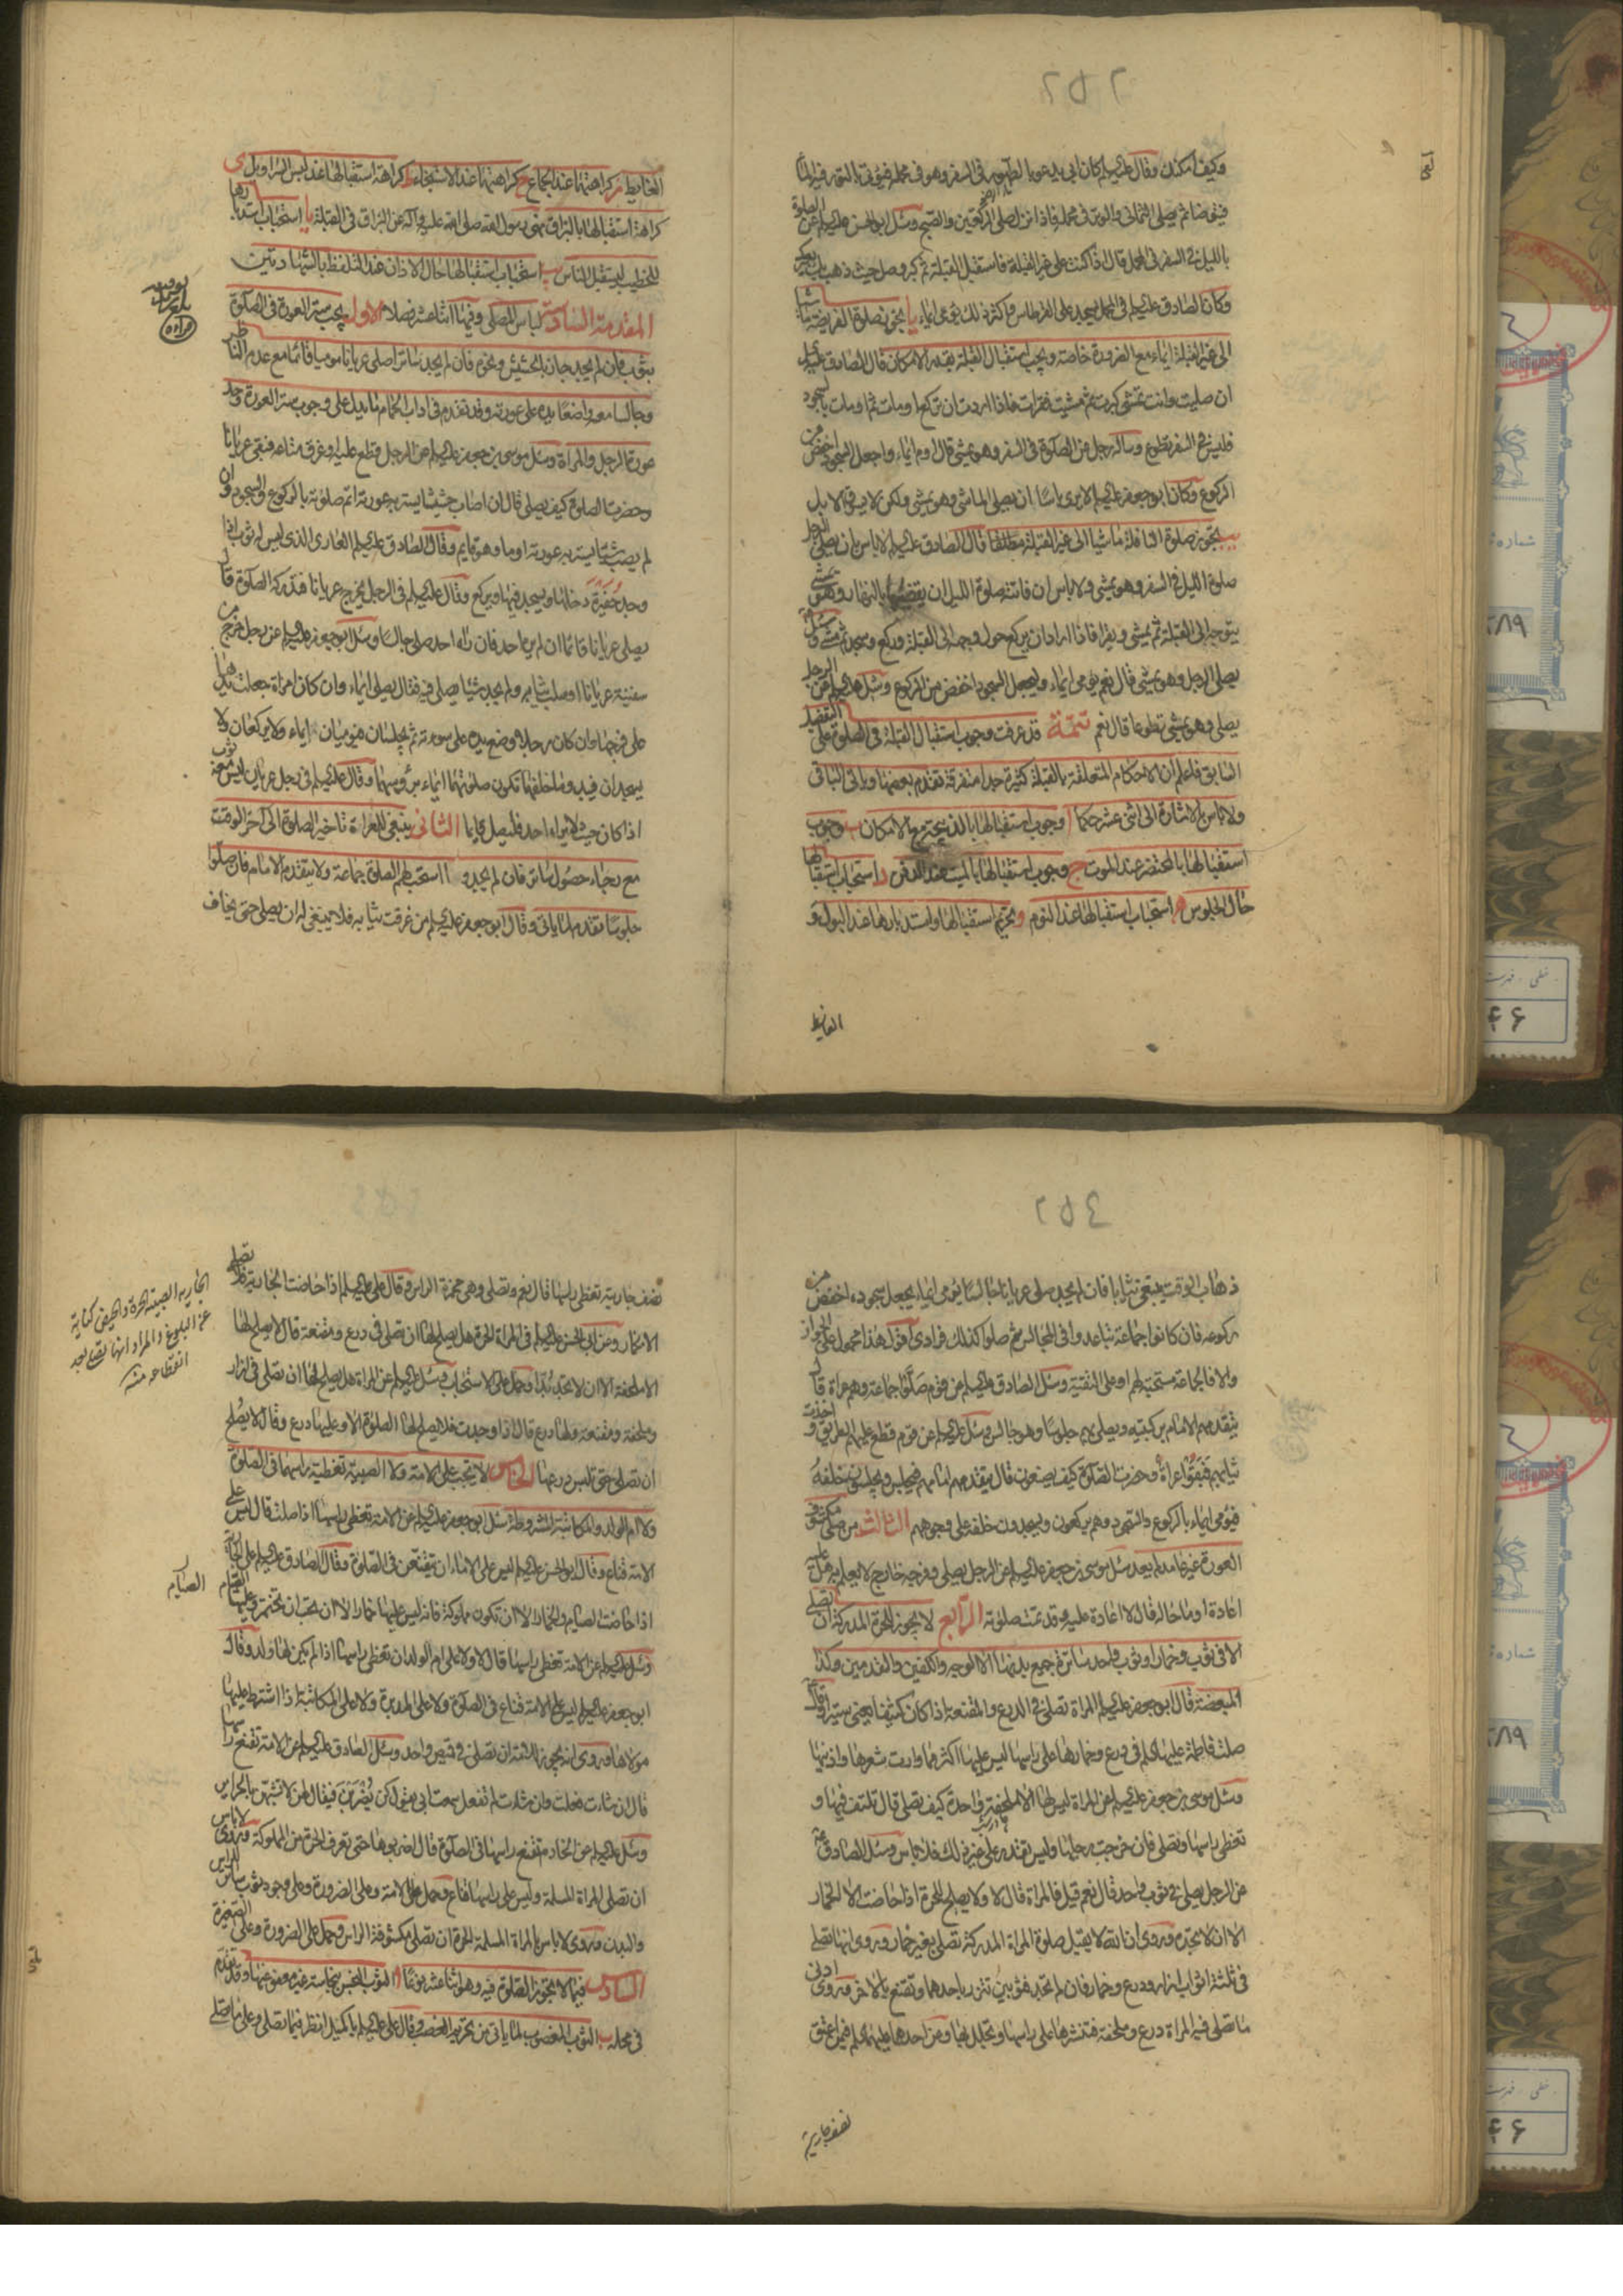 وكيف امكنك وقال عليه السلام كان ابي يدعو بالطهور في السفر وهو في محمله فيؤتى بالتور فيه الماء
فيتوضأ ثم يصلي الثماني والوتر في محمله فاذا نزل صلى الركعتين والصبح وسئل ابو الحسن عليه السلام عن الصلوة
بالليل في السفر في المحمل قال اذا كنت على غير القبلة فاستقبل القبلة ثم كبر وصل حيث ذهب بك بعيرك
وكان الصادق عليه السلام في المحمل يسجد على القرطاس واكثر ذلك يومي ايماء يا يجزي صلوة الفريضة ماشيا
الى غير القبلة ايماء مع الضرورة خاصة ويجب استقبال القبلة بقدر الامكان قال الصادق عليه السلام
ان صليت وانت تمشي كبرت ثم مشيت فقرات فاذا اردت ان تركع اومات ثم اومات بالسجود
فليس في السفر تطوع وساله رجل عن الصلوة في السفر وهو يمشي قال اوم ايماء واجعل السجود اخفض من
الركوع وكان ابو جعفر عليه السلام لا يرى باسا ان يصلي الماشي وهو يمشي ولكن لا يسوق الابل
يب يجوز صلوة النافلة ماشيا الى غير القبلة مطلقا قال الصادق عليه السلام لا باس بان يصلي الرجل
صلوة الليل في السفر وهو يمشي ولا باس ان فاتته صلوة الليل ان يقضيها بالنهار وهو يمشي
يتوجه الى القبلة ثم يمشي ويقرا فاذا اراد ان يركع حول وجهه الى القبلة وركع وسجد ثم مشى وسئل
يصلي الرجل وهو يمشي قال نعم يومي ايماء وليجعل السجود اخفض من الركوع وسئل عليه السلام عن الرجل
يصلي وهو يمشي تطوعا قال نعم تتمة قد عرفت وجوب استقبال القبلة في الصلوة على التفصيل
السابق فاعلم ان الاحكام المتعلقة بالقبلة كثيرة جدا متفرقة تقدم بعضها وياتي الباقي
ولا باس بالاشارة الى اثني عشر حكما ا وجوب استقبالها بالذبيحة مع الامكان ب وجوب
استقبالها بالمحتضر عند الموت ج وجوب استقبالها بالميت عند الدفن د استحباب استقبالها
حال الجلوس ه استحباب استقبالها عند النوم و تحريم استقبالها واستدبارها عند البول و
الغايط
الغايط ز كراهتهما عند الجماع ح كراهتهما عند الاستنجاء ط كراهة استقبالها عند لبس السراويل ى
كراهة استقبالها بالبزاق نهى رسول الله صلى الله عليه وآله عن البزاق في القبلة يا استحباب استدبارها
للخطيب ليستقبل الناس يب استحباب استقبالها حال الاذان عند التلفظ بالشهادتين
المقدمة السادسة لباس المصلي وفيها اثنا عشر فصلا الاول يجب ستر العورة في الصلوة
بثوب فان لم يجد جاز بالحشيش ونحوه فان لم يجد ساترا صلى عريانا موميا قائما مع عدم الناظر
وجالسا معه واضعا يده على عورته وقد تقدم في اداب الحمام ما يدل على وجوب ستر العورة وحد
عورة الرجل والمراة وسئل موسى بن جعفر عليه السلام عن الرجل قطع عليه او غرق متاعه فبقى عريانا
وحضرت الصلوة كيف يصلي قال ان اصاب حشيشا يستر به عورته اتم صلوته بالركوع والسجود وان
لم يصب شيئا يستر به عورته اوما وهو قايم وقال الصادق عليه السلام العاري الذي ليس له ثوب اذا
وجد حفيرة دخلها وسجد فيها وركع وقال عليه السلام في الرجل يخرج عريانا فتدركه الصلوة قال
يصلي عريانا قائما ان لم يره احد فان راه احد صلى جالسا وسئل ابو جعفر عليه السلام عن رجل خرج من
سفينة عريانا او سلب ثيابه ولم يجد شيئا يصلي فيه فقال يصلي ايماء وان كان امراة جعلت يدها
على فرجها وان كان رجلا وضع يده على سوءته ثم يجلسان فيوميان ايماء ولا يركعان ولا
يسجدان فيبدو ما خلفهما تكون صلوتهما ايماء برؤسهما وقال عليه السلام في رجل عريان ليس معه ثوب
اذا كان حيث لا يراه احد فليصل قايما الثاني ينبغي للعراة تاخير الصلوة الى آخر الوقت
مع رجاء حصول ساتر فان لم يجدوا استحب لهم الصلوة جماعة ولا يتقدم الامام فان صلوا
جلوسا تقدم لما ياتي وقال ابو جعفر عليه السلام من غرقت ثيابه فلا ينبغي له ان يصلي حتى يخاف
ذهاب الوقت يبتغي ثيابا فان لم يجد صلى عريانا جالسا يومي ايماء يجعل سجوده اخفض من
ركوعه فان كانوا جماعة تباعدوا في المجالس ثم صلوا كذلك فرادى اقول هذا محمول على الجواز
والا فالجماعة مستحبة لهم او على التقية وسئل الصادق عليه السلام عن قوم صلوا جماعة وهم عراة قال
يتقدمهم الامام بركبتيه ويصلي بهم جلوسا وهو جالس وسئل عليه السلام عن قوم قطع عليهم الطريق و اخذت
ثيابهم فبقوا عراة وحضرت الصلوة كيف يصنعون قال يتقدمهم امامهم فيجلس ويجلسون خلفه
فيومي ايماء بالركوع والسجود وهم يركعون ويسجدون خلفه على وجوههم الثالث من صلى مكشوف
العورة غير عامد لم يعد سئل موسى بن جعفر عليه السلام عن الرجل يصلي وفرجه خارج لا يعلم به هل عليه
اعادة او ما حاله قال لا اعادة عليه وقد تمت صلوته الرابع لا يجوز للحرة المدركة ان تصلي
الا في ثوب وخمار او ثوب واحد ساترة جميع بدنها الا الوجه والكفين والقدمين وكذا
المبعضة قال ابو جعفر عليه السلام المراة تصلي في الدرع والمقنعة اذا كان كثيفا يعني ستيرا وقال
صلت فاطمة عليها السلام في درع وخمارها على راسها ليس عليها اكثر مما وارت شعرها واذنيها
وسئل موسى بن جعفر عليه السلام عن المراة ليس لها الا ملحفة واحدة كيف تصلي قال تلتف فيها و
تغطي راسها وتصلي فان خرجت رجلها وليس تقدر على غير ذلك فلا باس وسئل الصادق ع
عن الرجل يصلي في ثوب واحد قال نعم قيل فالمراة قال لا ولا يصلح للحرة اذا حاضت الا الخمار
الا ان لا تجده وروى ان الله لا يقبل صلوة المراة المدركة تصلي بغير خمار وروى انها تصلي
في ثلثة اثواب ازار ودرع وخمار فان لم تجد فثوبين تتزر باحدهما وتقنع بالاخر وروى ادنى
ما تصلي فيه المراة درع وملحفة فتنشرها على راسها وتجلل بها وعن احدهما عليهما السلام فيمن اعتق
نصف جارية
نصف جارية تغطي راسها قال نعم وتصلي وهي مخمرة الراس وقال علي عليه السلام اذا حاضت الجارية فلا تصلي
الا بخمار وعن ابي الحسن عليه السلام في المراة الحرة هل يصلح لها ان تصلي في درع ومقنعة قال لا يصلح لها
الا ملحفة الا ان لا تجد بدا وحمل على الاستحباب وسئل عليه السلام عن المراة هل يصلح لها ان تصلي في ازار
وملحفة ومقنعة ولها درع قال اذا وجدت فلا يصلح لها الصلوة الا وعليها درع وقال لا يصلح
ان تصلي حتى تلبس درعها الخامس لا يجب على الامة ولا الصبية تغطية راسها في الصلوة
ولا ام الولد والمكاتبة المشروطة سئل ابو جعفر عليه السلام عن الامة تغطي راسها اذا صلت قال ليس على
الامة قناع وقال ابو الحسن عليه السلام ليس على الاماء ان يتقنعن في الصلوة وقال الصادق عليه السلام على الجارية
اذا حاضت الصيام والخمار الا ان تكون مملوكة فانه ليس عليها خمار الا ان تحب ان تختمر وعليها الصيام
وسئل عليه السلام عن الامة تغطي راسها قال لا ولا على ام الولد ان تغطي راسها اذا لم يكن لها ولد وقال
ابو جعفر عليه السلام ليس على الامة قناع في الصلوة ولا على المدبرة ولا على المكاتبة اذا اشترط عليها
مولاها وروى انه يجوز للامة ان تصلي في قميص واحد وسئل الصادق عليه السلام عن الامة تقنع راسها
قال ان شاءت فعلت وان شاءت لم تفعل سمعت ابي يقول كن يضربن فيقال لهن لا تشبهن بالحرائر
وسئل عليه السلام عن الخادم تقنع راسها في الصلوة قال اضربوها حتى تعرف الحرة من المملوكة وروى لا باس
ان تصلي المراة المسلمة وليس على راسها قناع وحمل على الامة وعلى الضرورة وعلى وجود ثوب ساتر للراس
والبدن وروى لا باس بالمراة المسلمة الحرة ان تصلي مكشوفة الراس وحمل على الضرورة وعلى الصغيرة
السادس فيما لا يجوز الصلوة فيه وهو اثنا عشر نوعا ا الثوب النجس بنجاسة غير معفو عنها وقد تقدم
في محله ب الثوب المغصوب لما ياتي من تحريم الغصب وقال علي عليه السلام يا كميل انظر فيما تصلي وعلى ما تصلي
الجارية الصبية الحرة والحيض كناية
عن البلوغ والمراد انها تصلي بعد
انقطاعه منه
الصيام
شماره
خطي . فهرست
۴۶